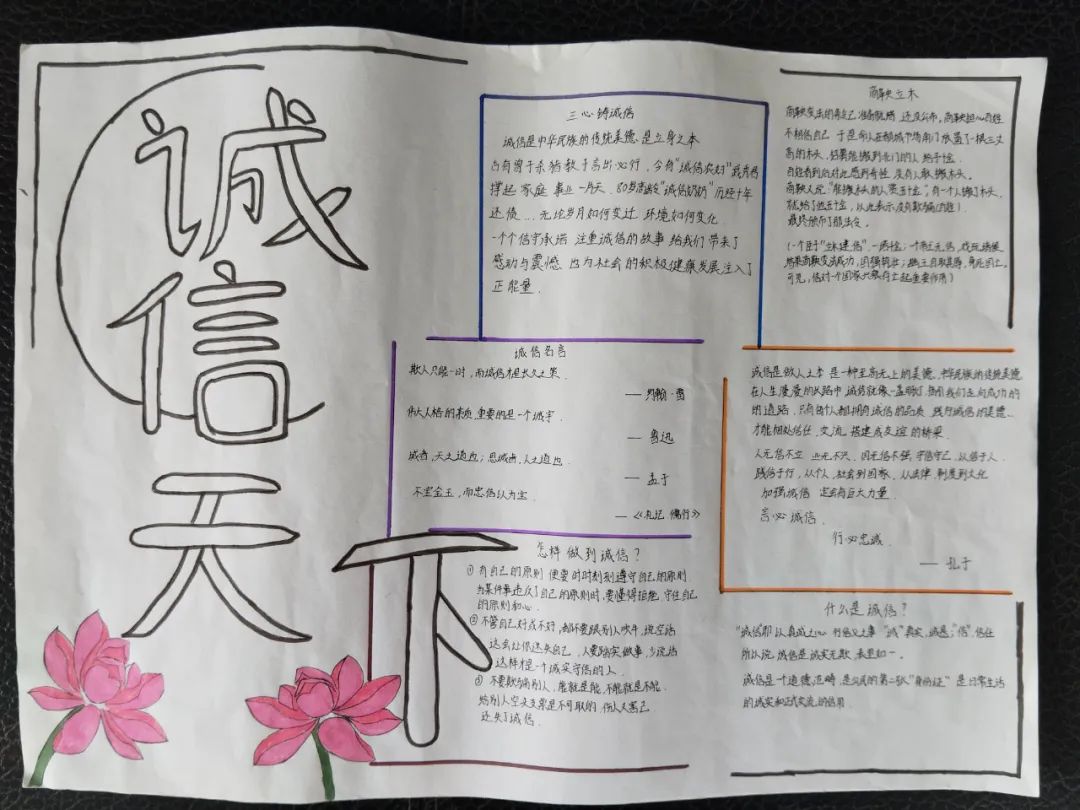 诚
信
天
下
三心铸诚信
诚信是中华民族的传统美德 是立身之本
古有曾子杀猪教子言出必行，今有"诚信农妇"
撑起家庭事业一片天，80岁高龄"诚信奶奶"历经十年
还债…无论岁月如何变迁 环境如何变化
一个个信守承诺 注重诚信的故事 给我们带来了
感动与震憾 也为社会的积极健康发展注入了
正能量.
商鞅立木
商鞅变法的 已准备就绪，还没公布，商鞅担心百姓
不相信自己 于是命人在都城市场南门放置了一根三丈
高的木头，如果能搬到北门的人 给予十金.
没有人敢搬木头.
商鞅又说"能搬木头的人赏五十金"，有一个人搬了木头，
就给了他五十金，以此表示没有欺骗
最终颁布了那法令。
(一个 "立木建信"，一诺 ；一个 无信，戏玩
结果商鞅变法成功，国强 ； 自取其辱，身死国亡。
可见，信对一个国家兴衰存亡起重要作用)
诚信名言
欺人只能一时，而诚信才是长久之策.
—— 约翰·雷
伟大人格的素质，重要的是一个诚字.
—— 鲁迅
诚者，天之道也；思诚者，人之道也.
—— 孟子
不宝金玉，而忠信以为宝.
——《礼记 儒行》
诚信是做人之本 是一种至高无上的美德，中华民族的传统美德
在人生漫漫的长路中 诚信就像一盏明灯 指引我们走向成功的
道路，只有每个人都拥有诚信的品质 践行诚信的美德…
才能相处信任、交流 搭建成友谊的桥梁.
人无信不立 业无不兴，国无信不强，守信守己，从信于人.
践信于行，从个人，社会到国家，从法律，制度到文化
加强诚信 定会有巨大力量.
言必诚信.
行必忠诚.
—— 孔子
怎样做到诚信？
① 有自己的原则 便要时时刻刻遵守自己的原则
当某件事违反了自己的原则时，要懂得拒绝，守住自己
的原则和心.
② 不管自己好或不好，都不要跟别人吹牛，说空话
这会让你迷失自己，人要踏实做事，少说话
这样才是一个诚实守信的人.
③ 不要欺骗别人，能就是能，不能就是不能.
给别人空头支票是不可取的，伤人又害己
还失了诚信.
什么是诚信？
"诚信"即以真诚之心 行信义之事 "诚" 真实，诚恳；"信"，信任
所以说，诚信是诚实无欺，表里如一.
诚信是一个道德范畴，是公民的第二张"身份证" 是日常生活
的诚实和正式交流的信用.